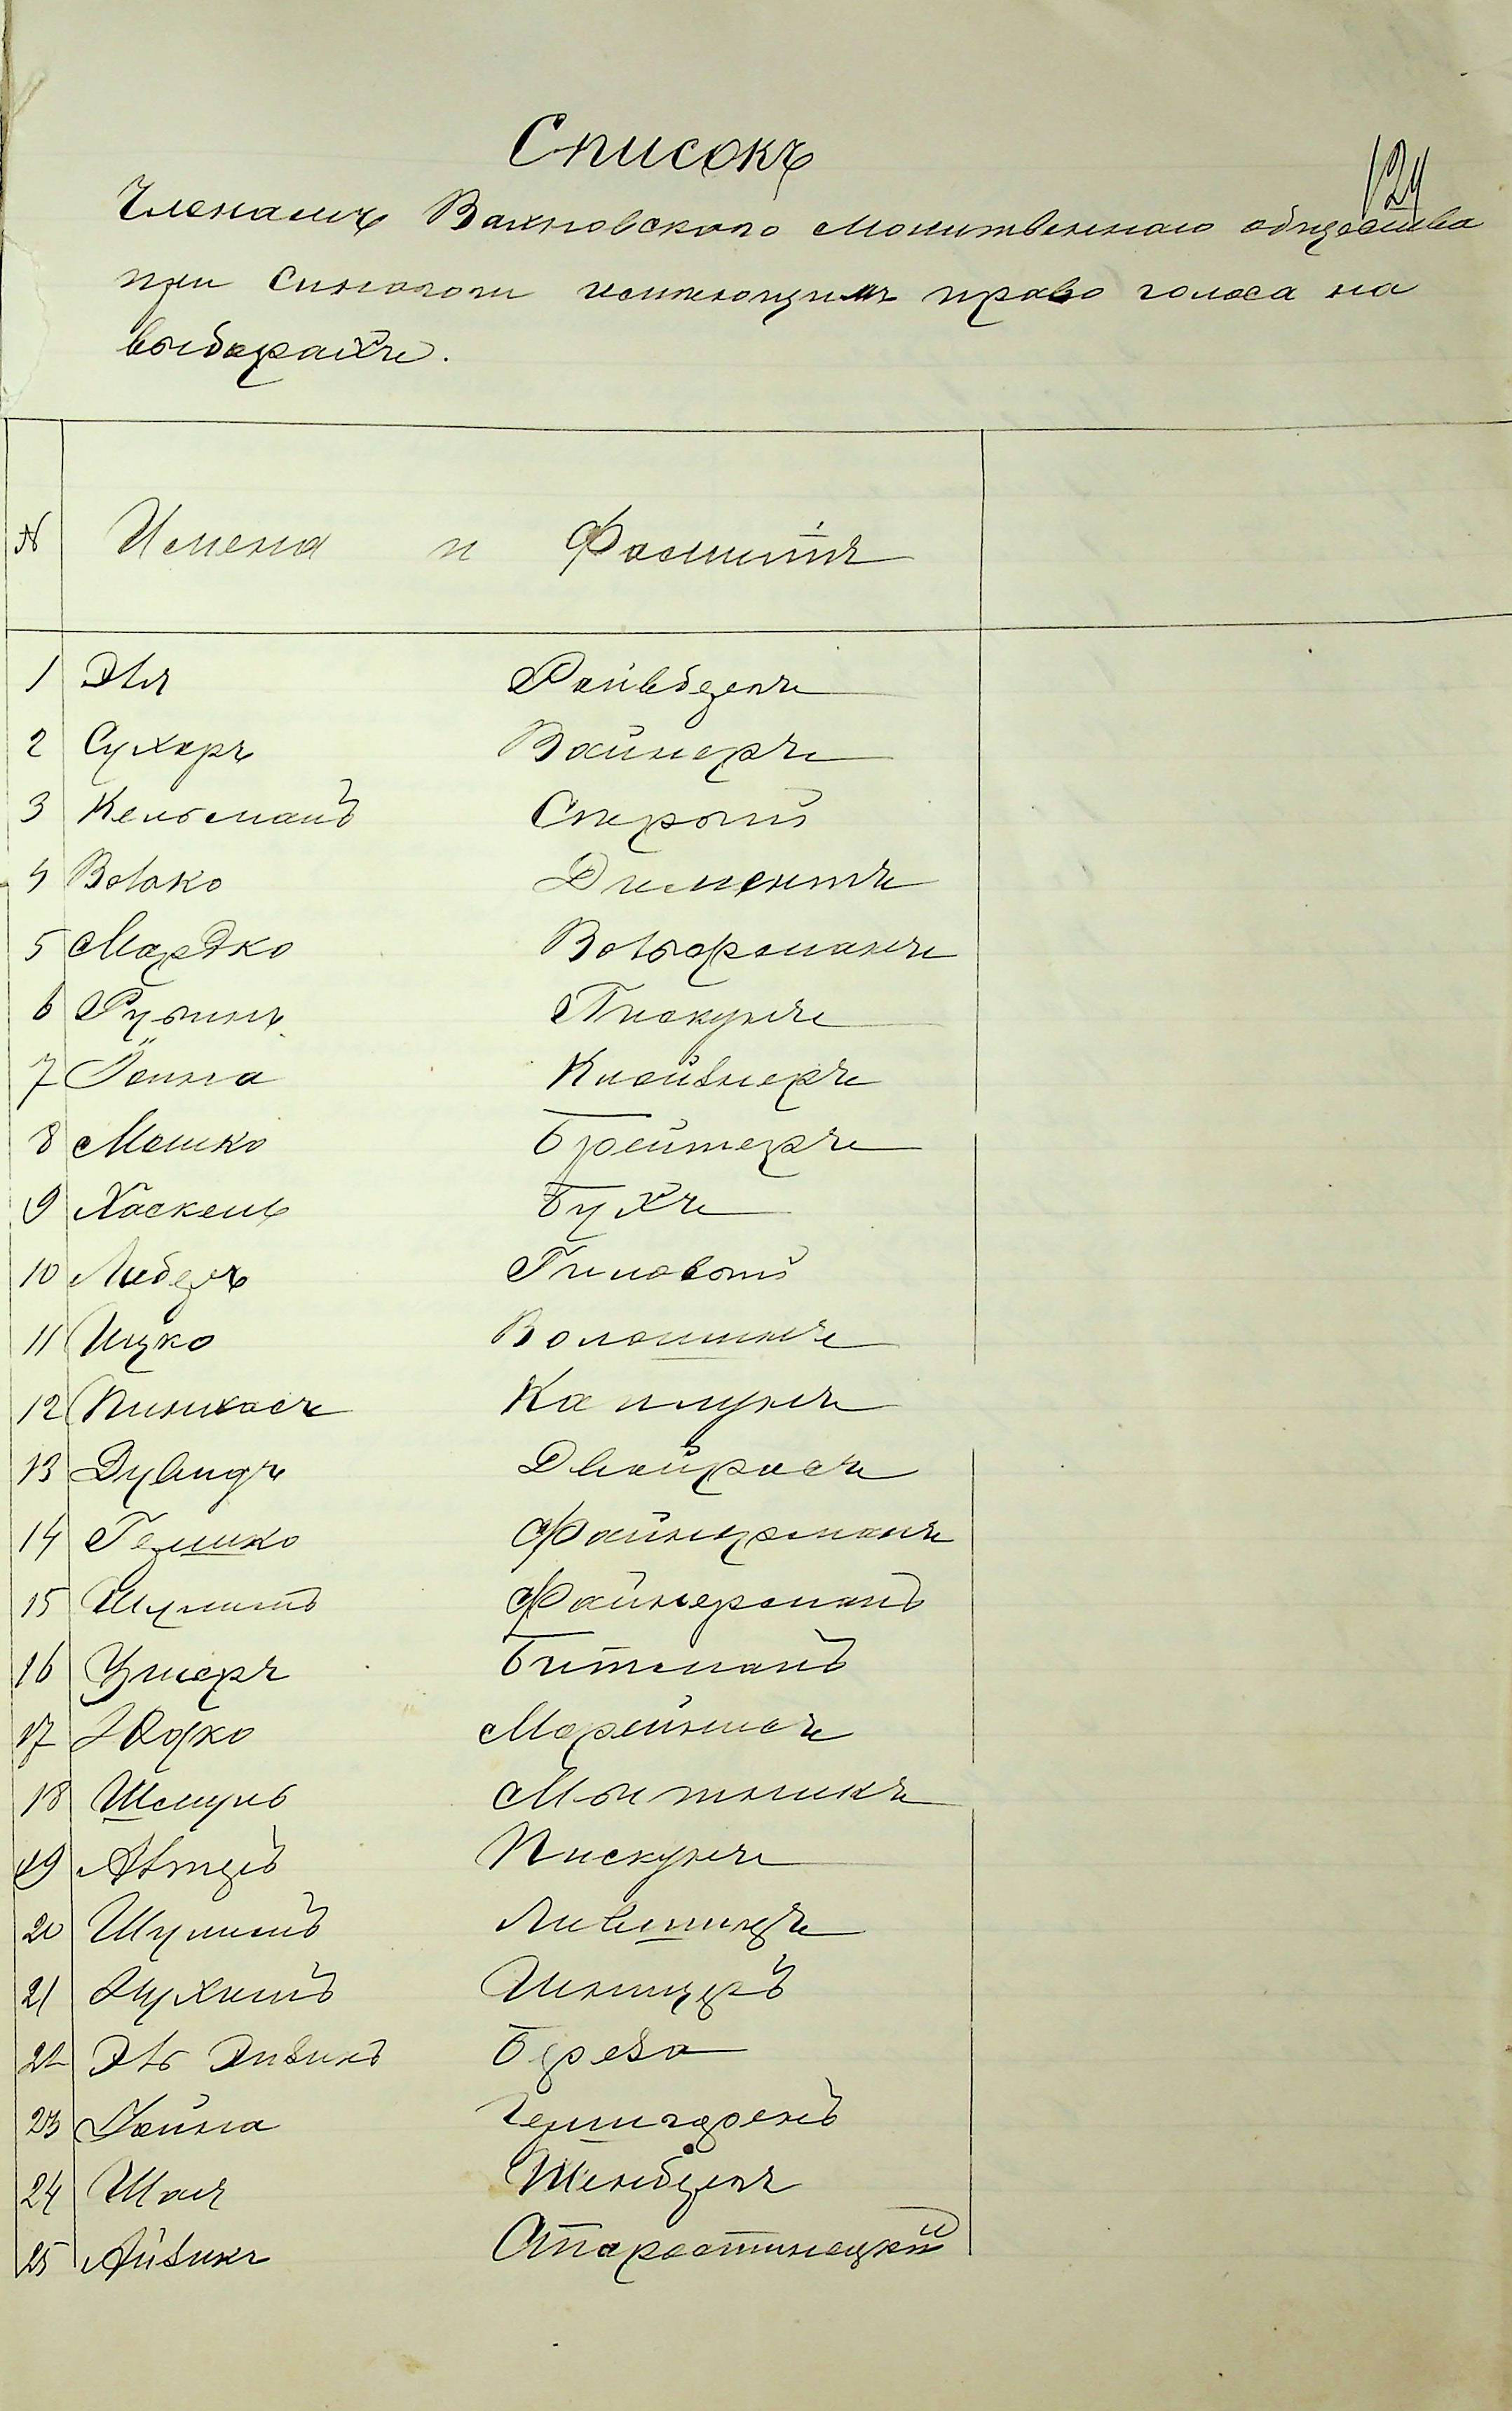 Списокъ
124
Членамъ Вахновскаго молитвеннаго общества
при синагоги имеющимъ право голоса на
выборахъ.
№ Имена и Фамилія
1 Эля Ройвбергъ
2 Сухаръ Вайнеръ
3 Кельманъ Спкрый
4 Волько Диментъ
5 Мордко Вольфоманъ
6 Рувинъ Пискунъ
7 Іойна Клейзнеръ
8 Мошко Брейтеръ
9 Хаскель Бухъ
10 Лейбъ Гиловый
11 Ицко Волошинъ
12 Пинхасъ Каплунъ
13 Дувидъ Двойрасъ
14 Гершко Файнерманъ
15 Шулимъ Файнерманъ
16 Ушеръ Битманъ
17 Юдко Марейнисъ
18 Шмуль Мытникъ
19 Альтеръ Пискунъ
20 Шулимъ Лившицъ
21 Нухимъ Шницеръ
22 Эль Эйзикъ Береза
23 Іойна Гершгоренъ
24 Шая Шенбергъ
25 Айзикъ Старостинецкій